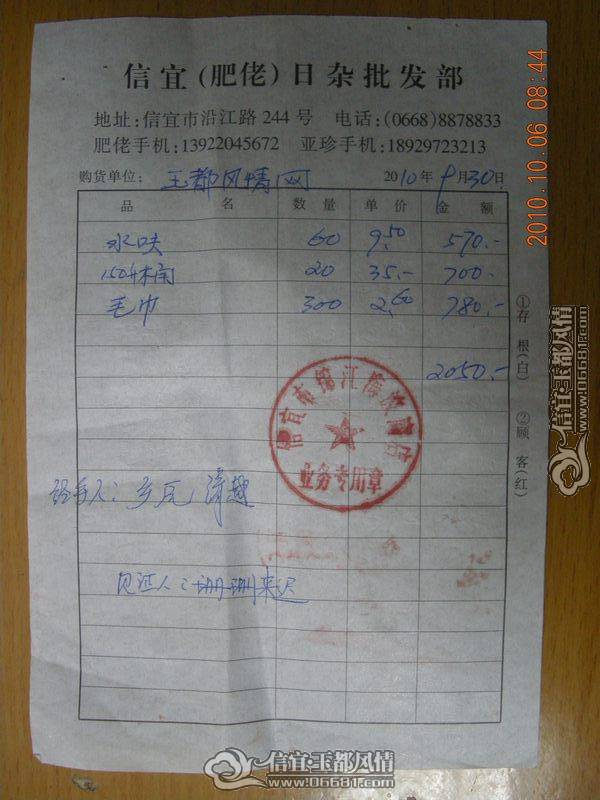 信宜(肥佬)日杂批发部
地址:信宜市沿江路244号 电话:(0668)8878833
肥佬手机:13922045672 亚珍手机:18929723213
购货单位: 玉都风情网 2010年9月30日
品 名 数量 单价 金额
水呋 60 9.50 570.-
150#桶 20 35.- 700.
毛巾 300 2.60 780.-
2050.-
①存根(白) ②顾客(红)
业务专用章
经手人: 乡瓦 清趣
见证人: 珊珊来迟
2010.10.06 08:44
信宜·玉都风情
www.06681.com
信宜·玉都风情
www.06681.com